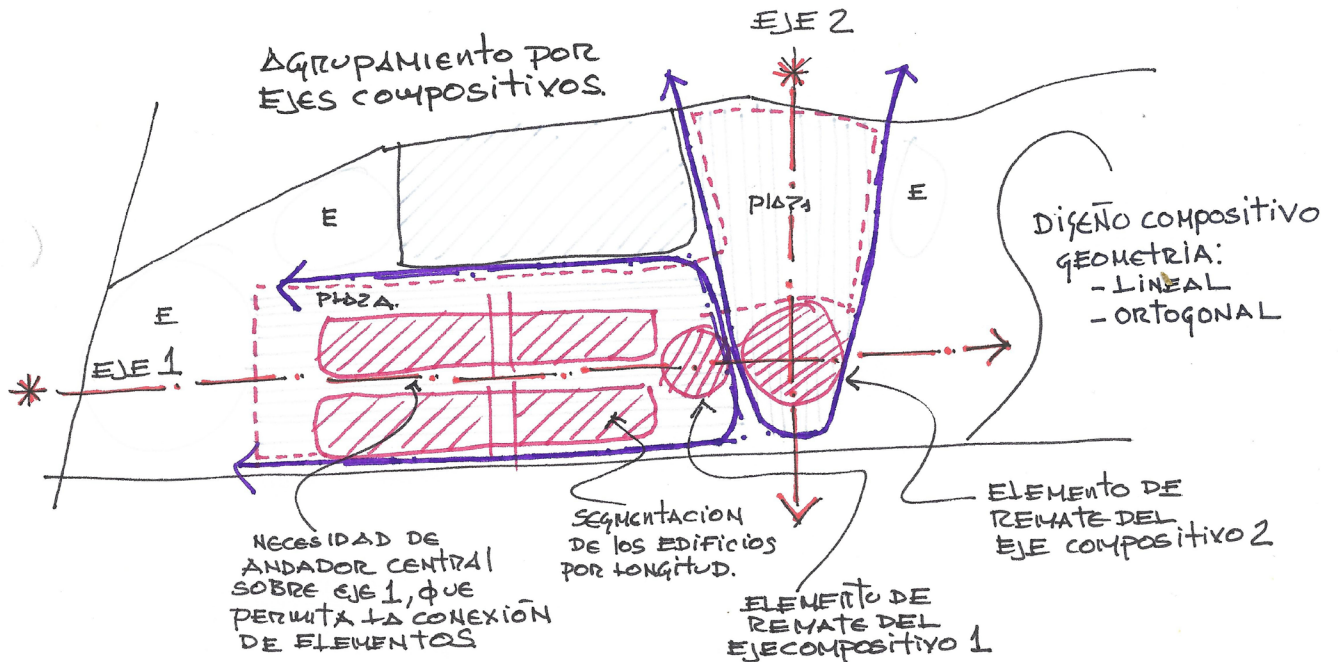 EJE 2
AGRUPAMIENTO POR
EJES COMPOSITIVOS.
E
PLAZA
E
DISEÑO COMPOSITIVO
GEOMETRIA:
- LINEAL
- ORTOGONAL
PLAZA.
E
EJE 1
NECESIDAD DE
ANDADOR CENTRAL
SOBRE EJE 1, QUE
PERMITA LA CONEXIÓN
DE ELEMENTOS
SEGMENTACION
DE LOS EDIFICIOS
POR LONGITUD.
ELEMENTO DE
REMATE DEL
EJE COMPOSITIVO 1
ELEMENTO DE
REMATE DEL
EJE COMPOSITIVO 2